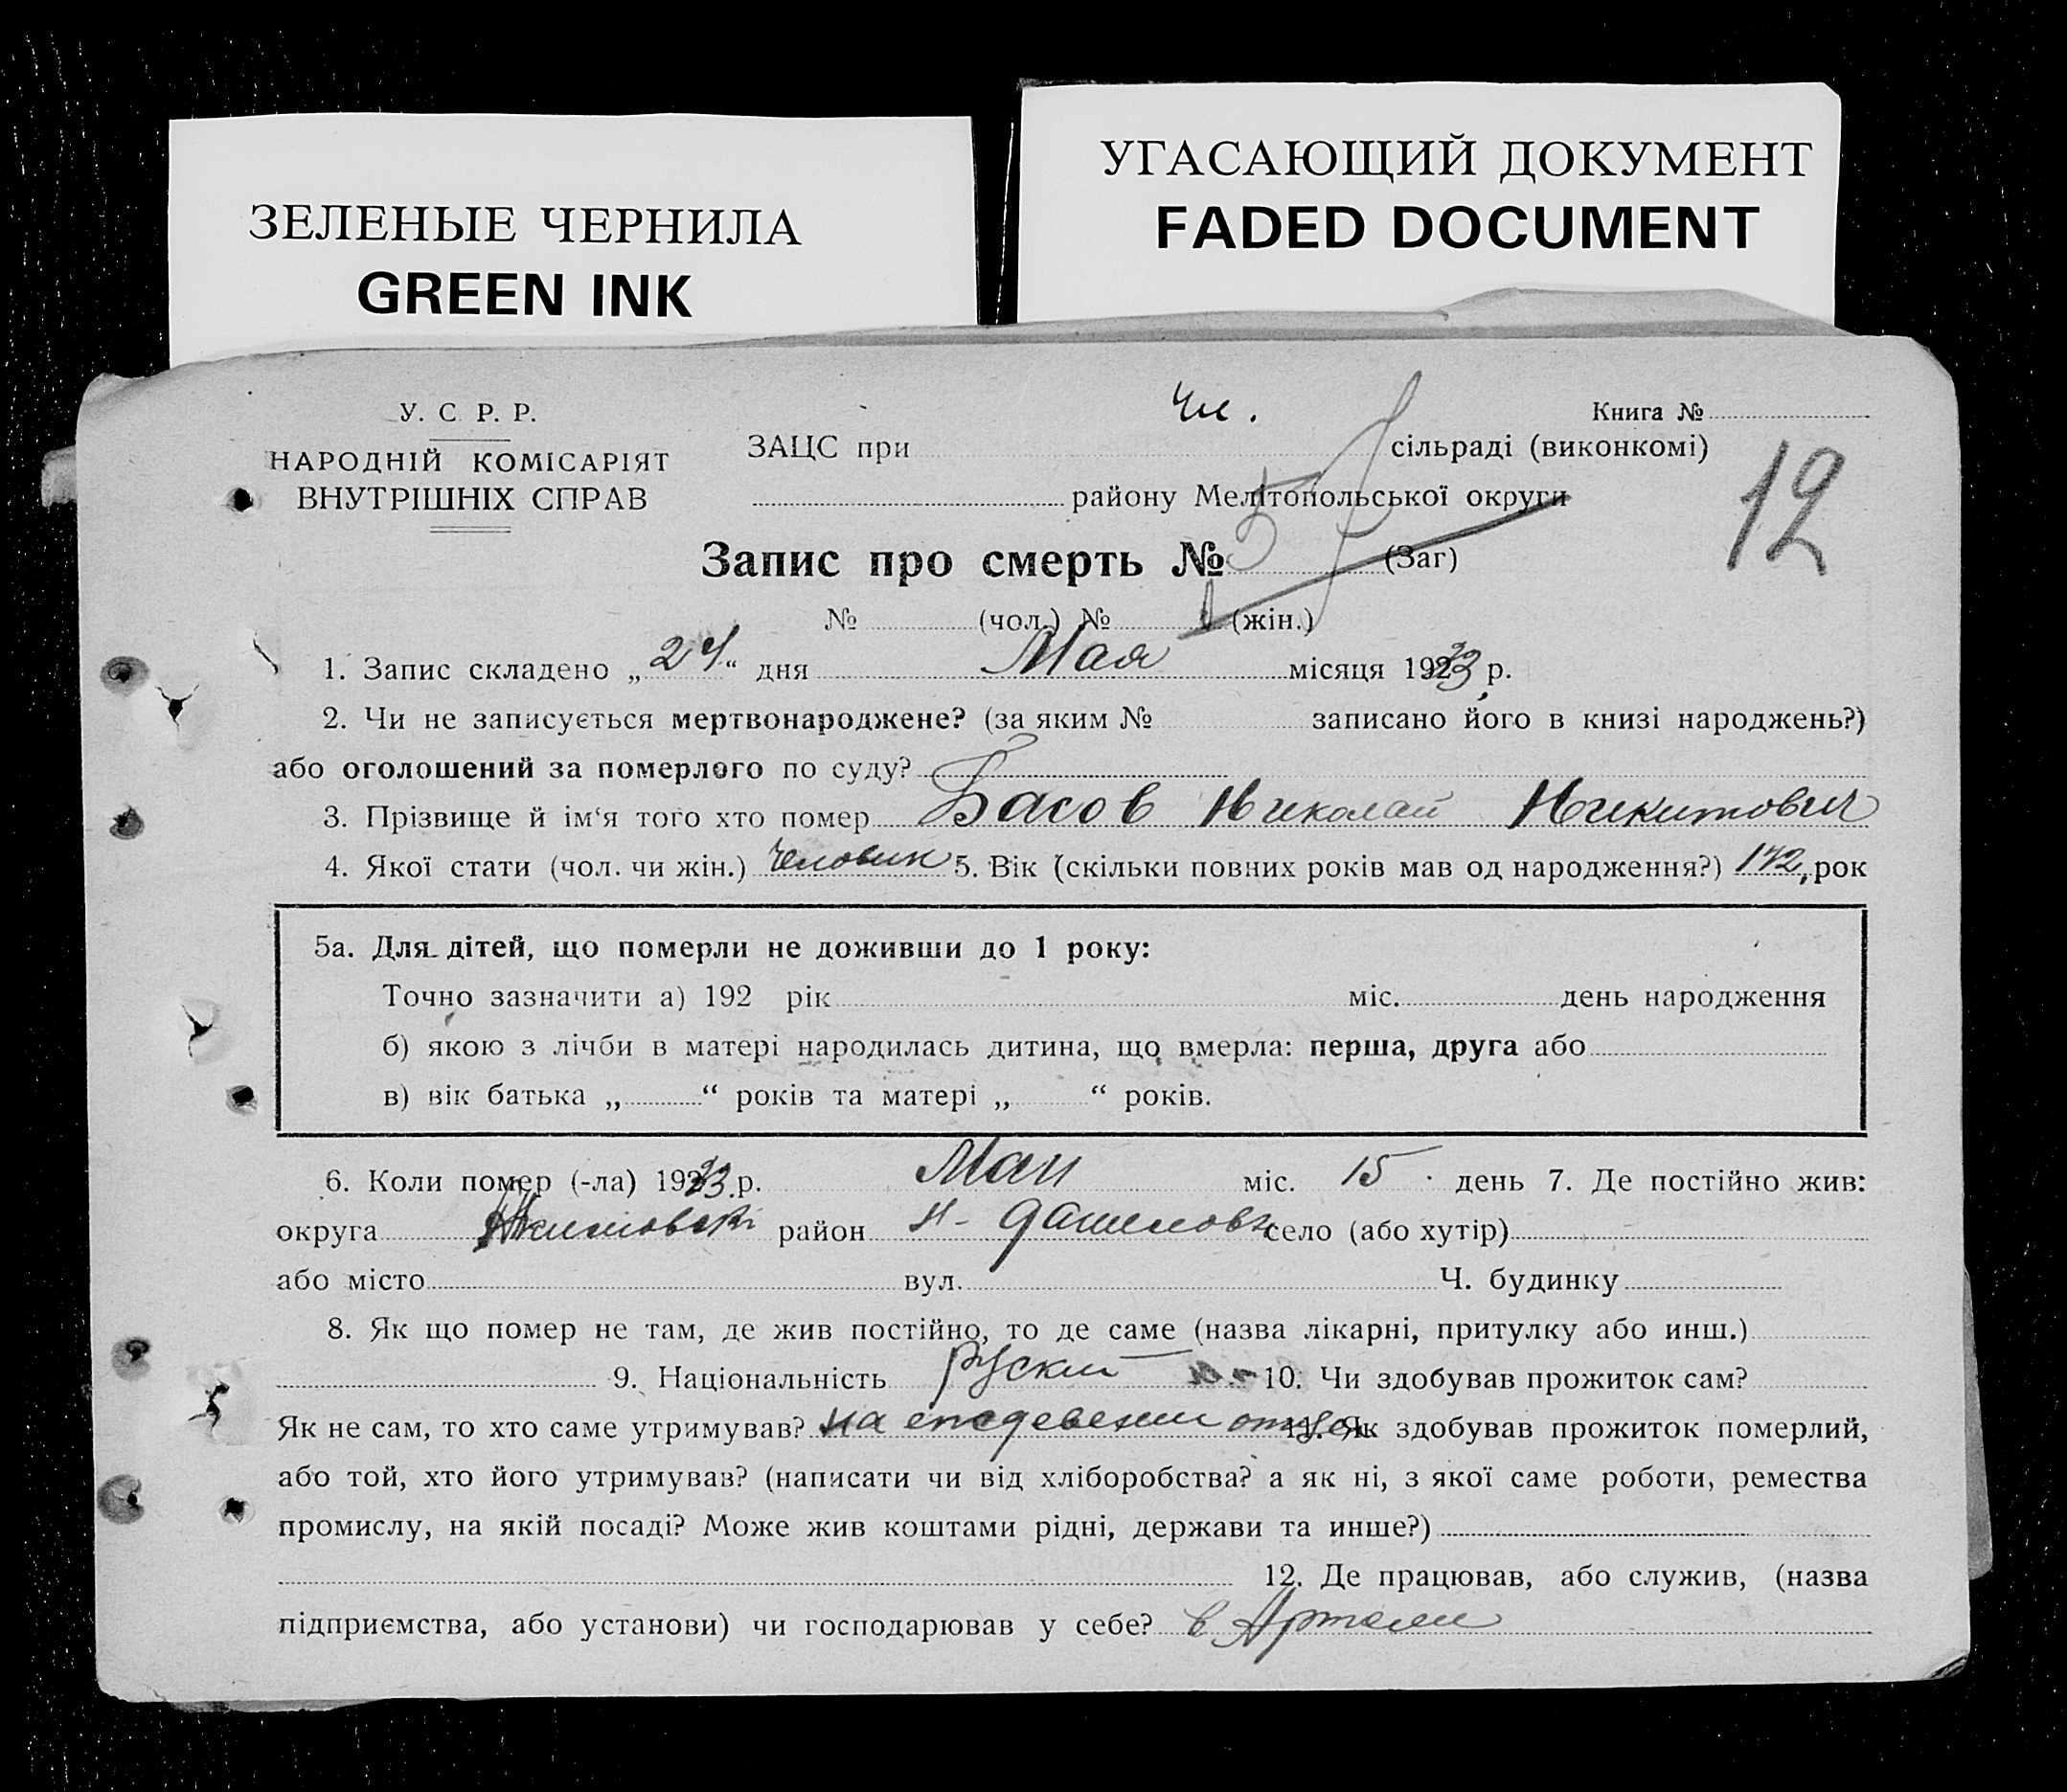 ЗЕЛЕНЫЕ ЧЕРНИЛА
GREEN INK
УГАСАЮЩИЙ ДОКУМЕНТ
FADED DOCUMENT
У. С. Р. Р.
НАРОДНІЙ КОМІСАРІЯТ
ВНУТРІШНІХ СПРАВ
Книга №
ЗАЦС при сільраді (виконкомі)
району Мелітопольської округи
12
Запис про смерть № (Заг)
№ (чол.) № (жін.)
1. Запис складено „24“ дня Мая місяця 1933 р.
2. Чи не записується мертвонароджене? (за яким № записано його в книзі народжень?)
або оголошений за померлого по суду?
3. Прізвище й ім‘я того хто помер Басов Николай Никитович
4. Якої стати (чол. чи жін.) Человик 5. Вік (скільки повних років мав од народження?) рок
5а. Для дітей, що померли не доживши до 1 року:
Точно зазначити а) 192 рік міс. день народження
б) якою з лічби в матері народилась дитина, що вмерла: перша, друга або
в) вік батька „ “ років та матері „ “ років.
6. Коли помер (-ла) 1933 р. Маи міс. 15 день 7. Де постійно жив:
округа район село (або хутір)
або місто вул. Ч. будинку
8. Як що помер не там, де жив постійно, то де саме (назва лікарні, притулку або инш.)
9. Національність Руский 10. Чи здобував прожиток сам?
Як не сам, то хто саме утримував? на 11. Як здобував прожиток померлий,
або той, хто його утримував? (написати чи від хліборобства? а як ні, з якої саме роботи, ремества
промислу, на якій посаді? Може жив коштами рідні, держави та инше?)
12. Де працював, або служив, (назва
підприємства, або установи) чи господарював у себе? в Артели